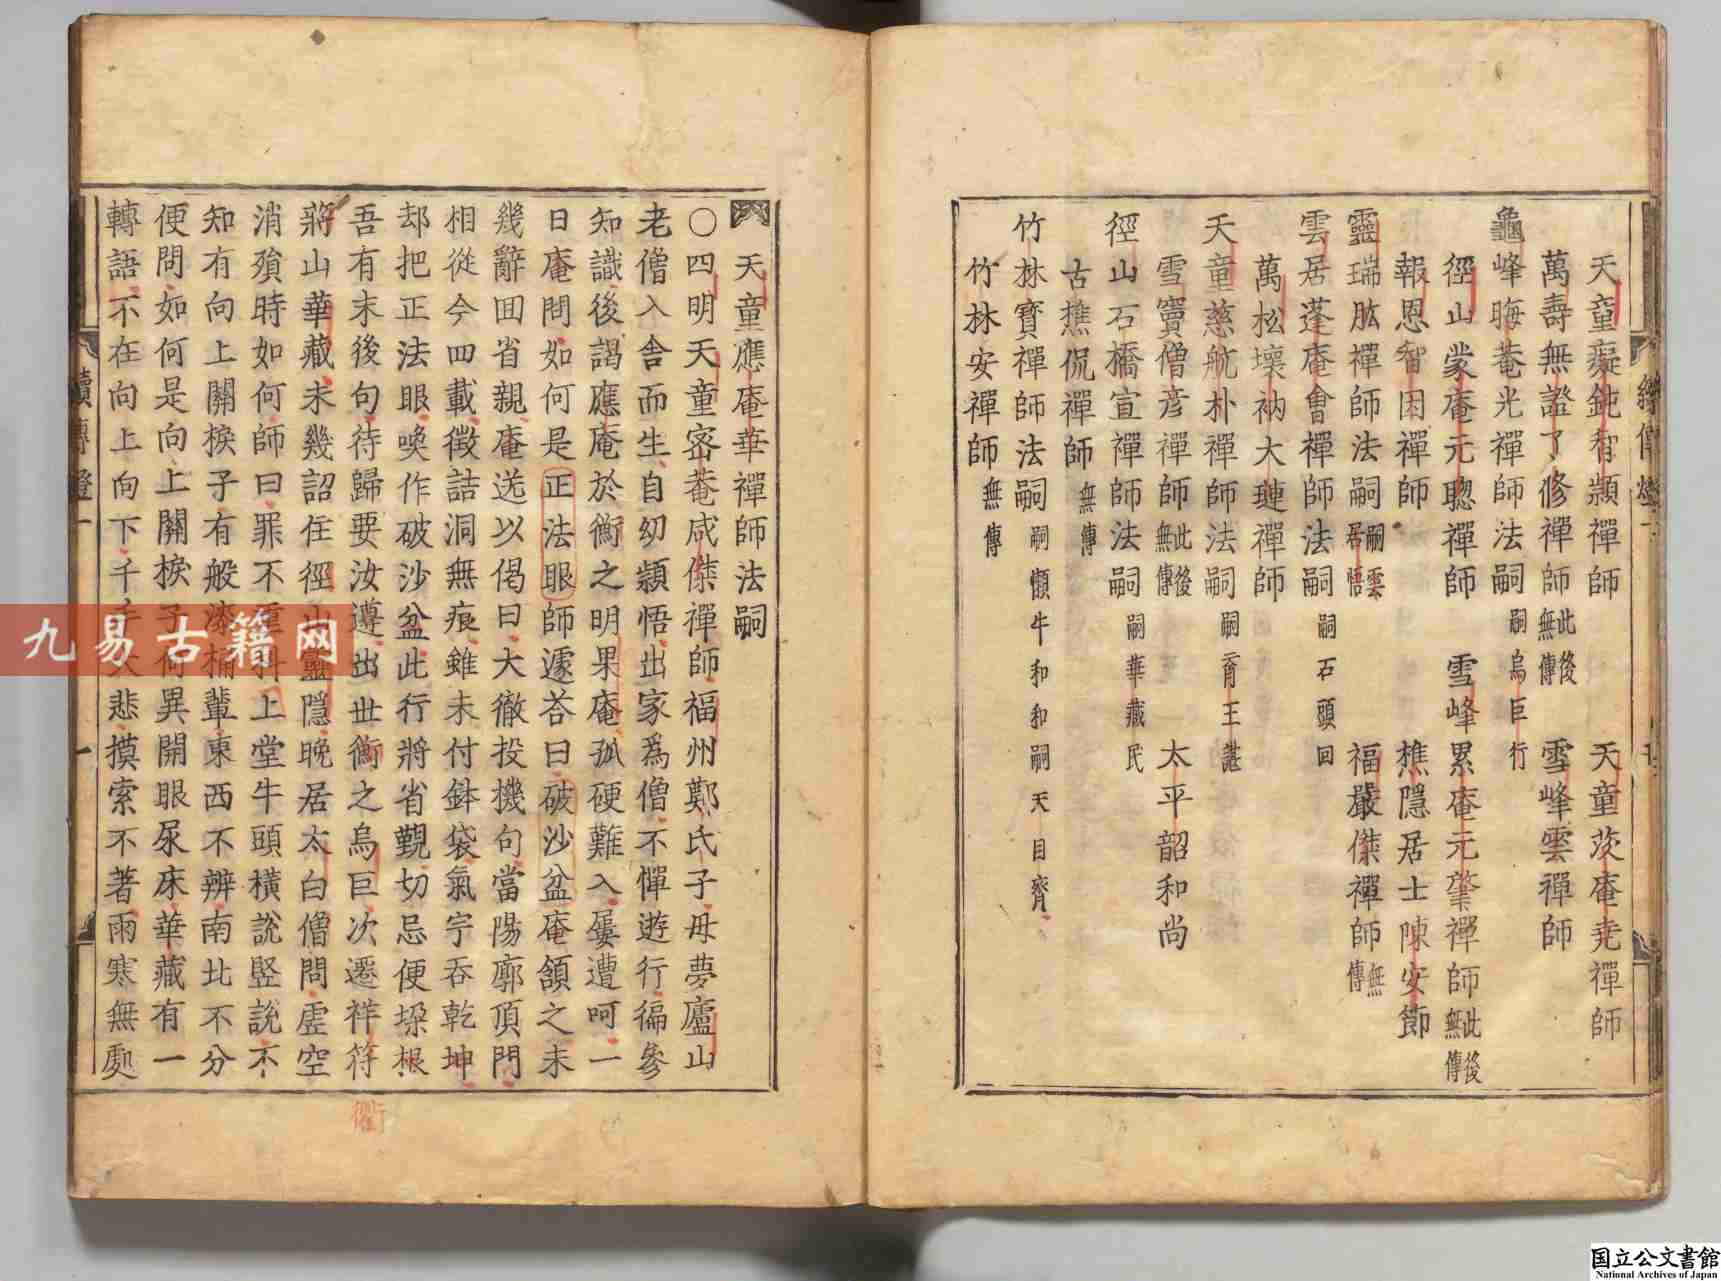 天童癡鈍智穎禪師　天童茨庵尭禪師
萬壽無證了修禪師無傳此後　雪峰雲禪師
龜峰晦菴光禪師法嗣嗣烏巨行
徑山蒙庵元聰禪師　雪峰累庵元肇禪師無傳此後
報恩智因禪師　樵隱居士陳安節
靈瑞肱禪師法嗣嗣雲居悟　福嚴傑禪師無傳
雲居蓬庵會禪師法嗣嗣石頭回
萬松壞衲大璉禪師
天童慈航朴禪師法嗣嗣育王諶
雪竇僧彦禪師無傳此後　太平韶和尚
徑山石橋宣禪師法嗣嗣華藏民
古樵侃禪師無傳
竹林寳禪師法嗣嗣懶牛和和嗣天目齊
竹林安禪師無傳
天童應庵華禪師法嗣
〇四明天童宻菴咸傑禪師福州鄭氏子母夢廬山
老僧入舎而生自幼穎悟出家爲僧不憚遊行徧參
知識後謁應庵於衢之明果庵孤硬難入屢遭呵一
日庵問如何是正法眼師遽荅曰破沙盆庵頷之未
幾辭囬省親庵送以偈曰大徹投機句當陽廓頂門
相從今四載徵詰洞無痕雖未付鉢袋氣宇吞乾坤
却把正法眼喚作破沙盆此行將省覲切忌便垜根
吾有末後句待歸要汝遵出世衢之烏巨次遷祥符
蔣山華藏未幾詔住徑山靈隱晚居太白僧問虚空
消殞時如何師曰罪不重科上堂牛頭橫說竪說不
知有向上關棙子有般漆桶輩東西不辨南北不分
便問如何是向上關棙子何異開眼尿床華藏有一
轉語不在向上向下千手大悲摸索不著雨寒無處
續傳燈一
一
衢
九易古籍网
国立公文書館
National Archives of Japan